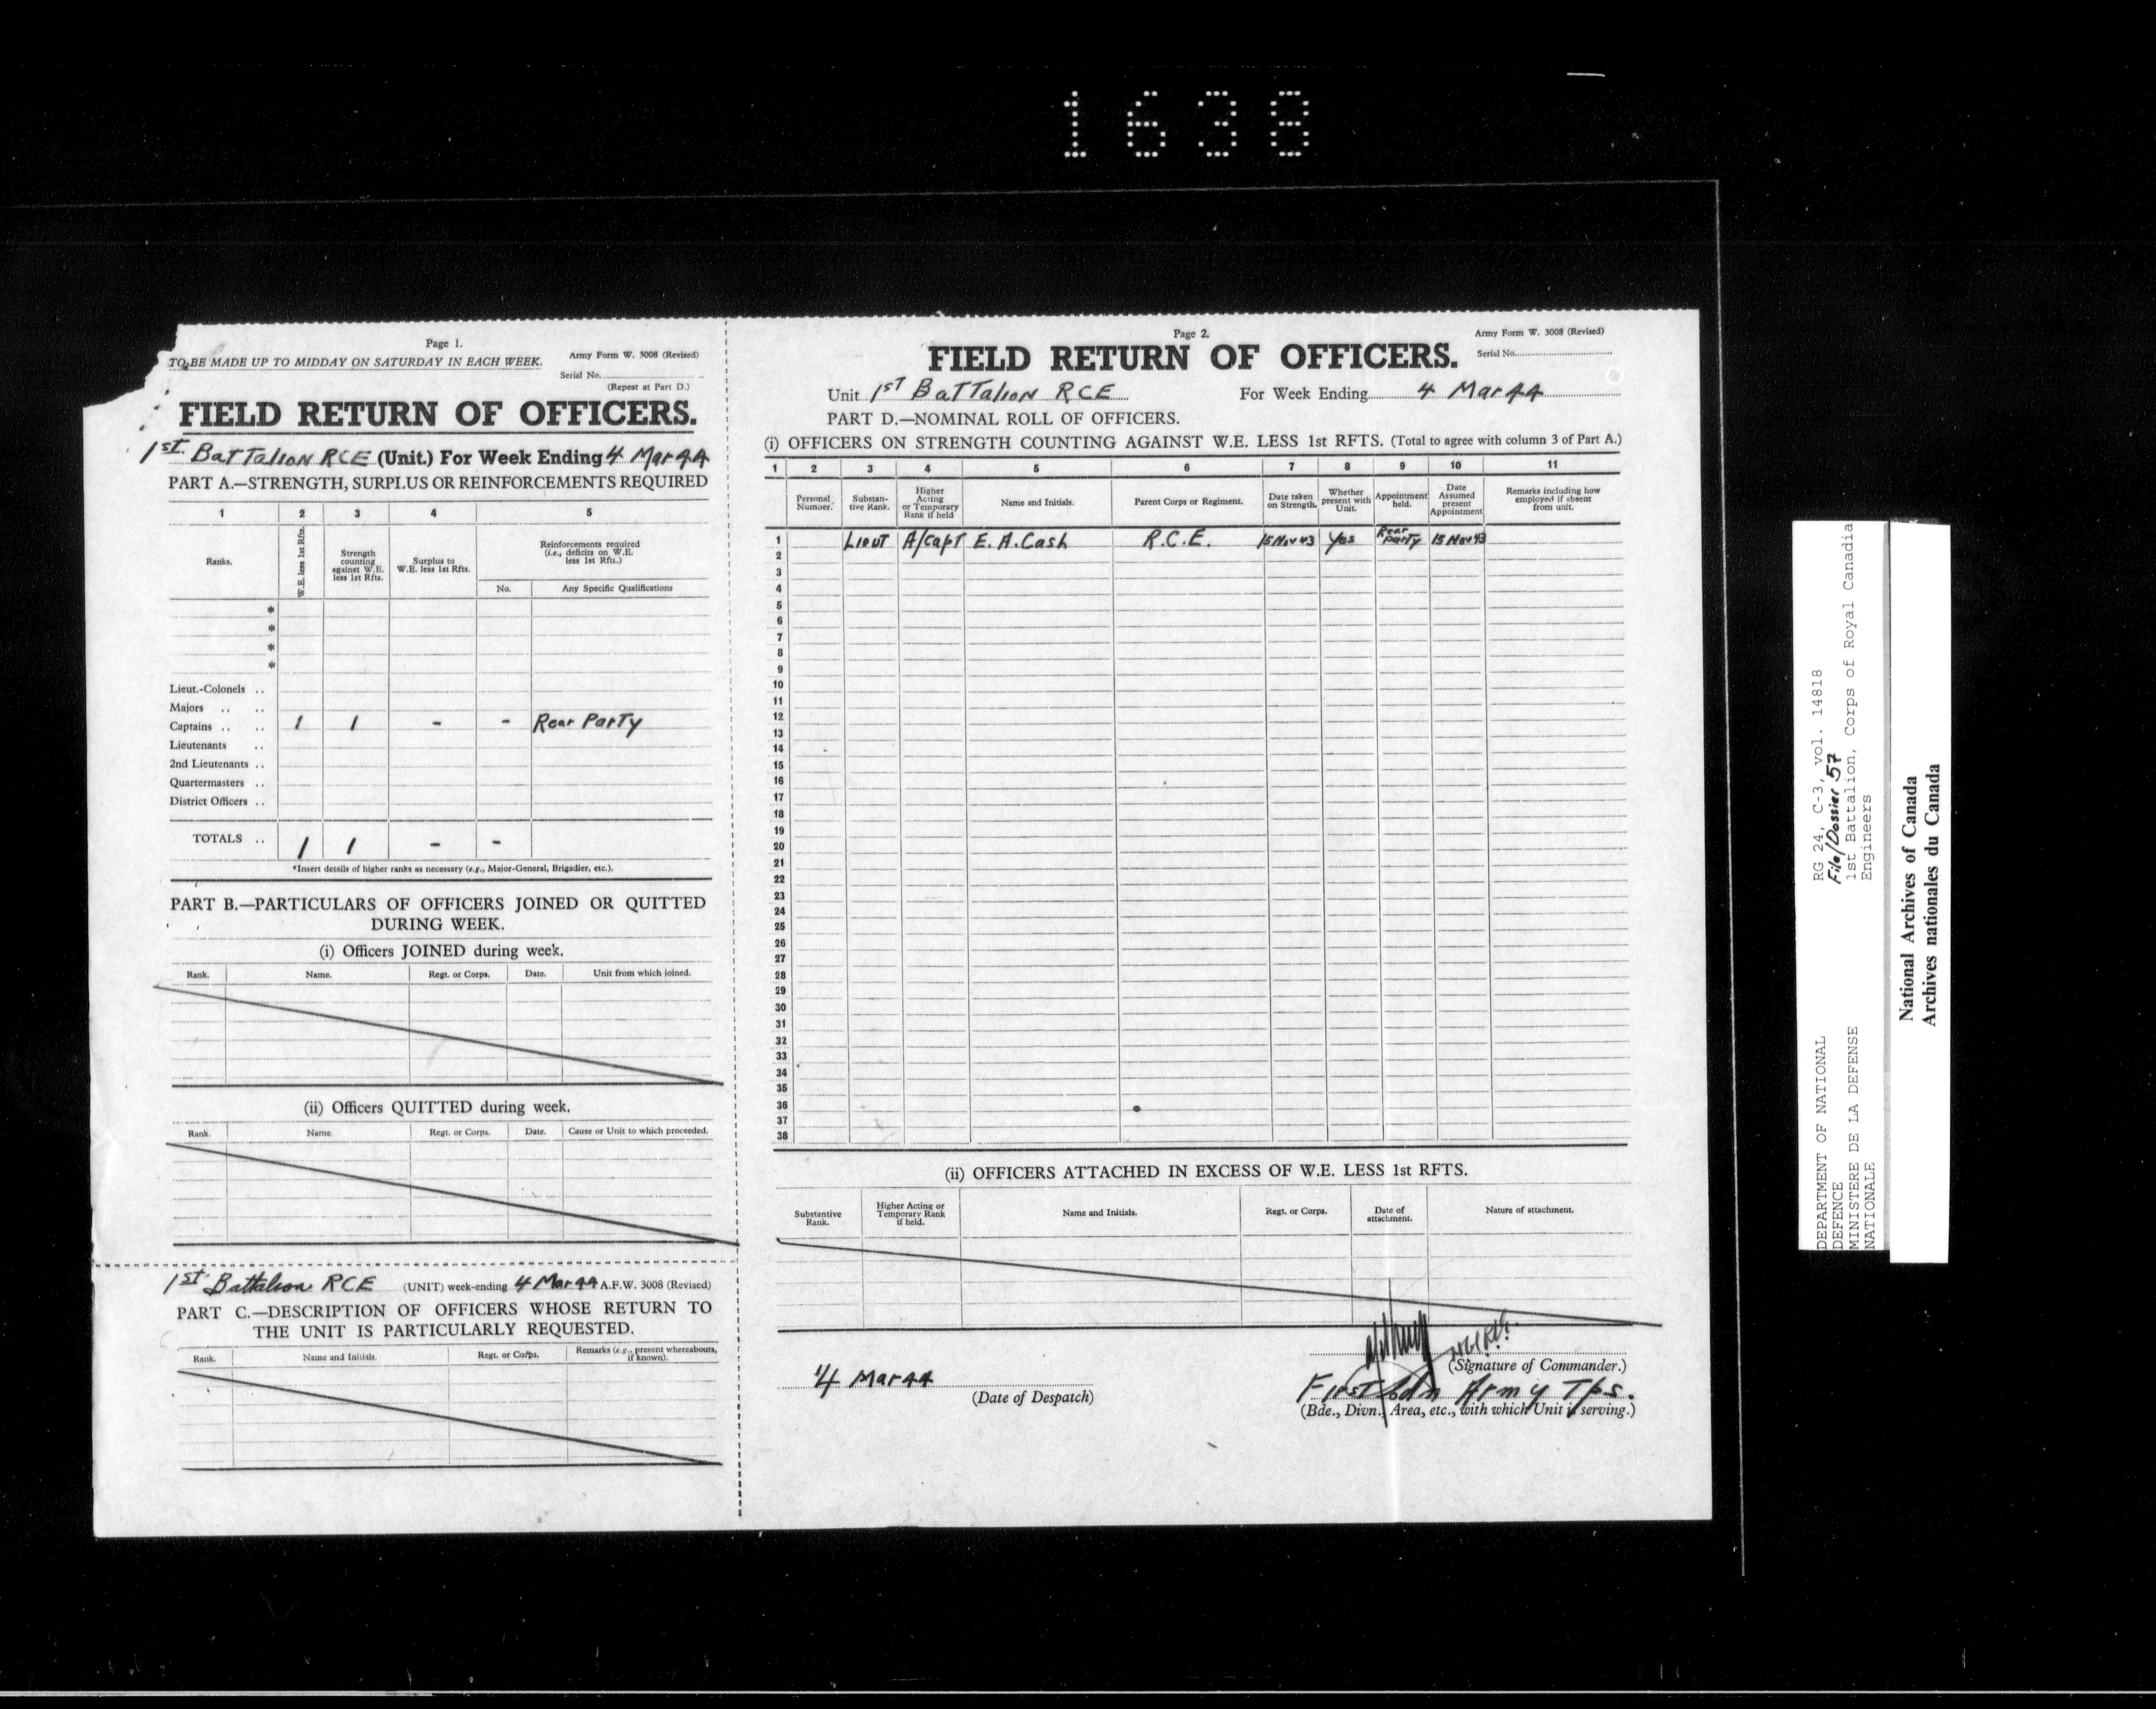 1638
Page 1.
TO BE MADE UP TO MIDDAY ON SATURDAY IN EACH WEEK.
Army Form W. 3008 (Revised)
Serial No.
(Repeat at Part D.)
FIELD RETURN OF OFFICERS.
1st. Battalion RCE (Unit.) For Week Ending 4 Mar 44
PART A.—STRENGTH, SURPLUS OR REINFORCEMENTS REQUIRED
1 2 3 4 5
Ranks.
W.E. less 1st Rfts.
Strength counting against W.E. less 1st Rfts.
Surplus to W.E. less 1st Rfts.
Reinforcements required (i.e., deficits on W.E. less 1st Rfts.)
No. Any Specific Qualifications
*
*
*
*
Lieut.-Colonels ..
Majors .. ..
Captains .. .. 1 1 - - Rear Party
Lieutenants ..
2nd Lieutenants ..
Quartermasters ..
District Officers ..
TOTALS .. 1 1 - -
*Insert details of higher ranks as necessary (e.g., Major-General, Brigadier, etc.).
PART B.—PARTICULARS OF OFFICERS JOINED OR QUITTED
DURING WEEK.
(i) Officers JOINED during week.
Rank. Name. Regt. or Corps. Date. Unit from which joined.
(ii) Officers QUITTED during week.
Rank. Name Regt. or Corps. Date. Cause or Unit to which proceeded.
1st Battalion RCE (UNIT) week-ending 4 Mar 44 A.F.W. 3008 (Revised)
PART C.—DESCRIPTION OF OFFICERS WHOSE RETURN TO
THE UNIT IS PARTICULARLY REQUESTED.
Rank. Name and Initials. Regt. or Corps. Remarks (e.g., present whereabouts, if known).
Page 2.
Army Form W. 3008 (Revised)
FIELD RETURN OF OFFICERS.
Serial No.
Unit 1ST Battalion RCE For Week Ending 4 Mar 44
PART D.—NOMINAL ROLL OF OFFICERS.
(i) OFFICERS ON STRENGTH COUNTING AGAINST W.E. LESS 1st RFTS. (Total to agree with column 3 of Part A.)
1 2 3 4 5 6 7 8 9 10 11
Personal Number.
Substantive Rank.
Higher Acting or Temporary Rank if held
Name and Initials.
Parent Corps or Regiment.
Date taken on Strength.
Whether present with Unit.
Appointment held.
Date Assumed present Appointment
Remarks including how employed if absent from unit.
1 Lieut A/Capt E. A. Cash R.C.E. 15 Nov 43 Yes Rear Party 15 Nov 43
2
3
4
5
6
7
8
9
10
11
12
13
14
15
16
17
18
19
20
21
22
23
24
25
26
27
28
29
30
31
32
33
34
35
36
37
38
(ii) OFFICERS ATTACHED IN EXCESS OF W.E. LESS 1st RFTS.
Substantive Rank.
Higher Acting or Temporary Rank if held.
Name and Initials.
Regt. or Corps.
Date of attachment.
Nature of attachment.
4 Mar 44
(Date of Despatch)
(Signature of Commander.)
First Cdn Army Tps.
(Bde., Divn., Area, etc., with which Unit is serving.)
DEPARTMENT OF NATIONAL
DEFENCE
MINISTERE DE LA DEFENSE
NATIONALE
RG 24, C-3, vol. 14818
File/Dossier 57
1st Battalion, Corps of Royal Canadia
Engineers
National Archives of Canada
Archives nationales du Canada